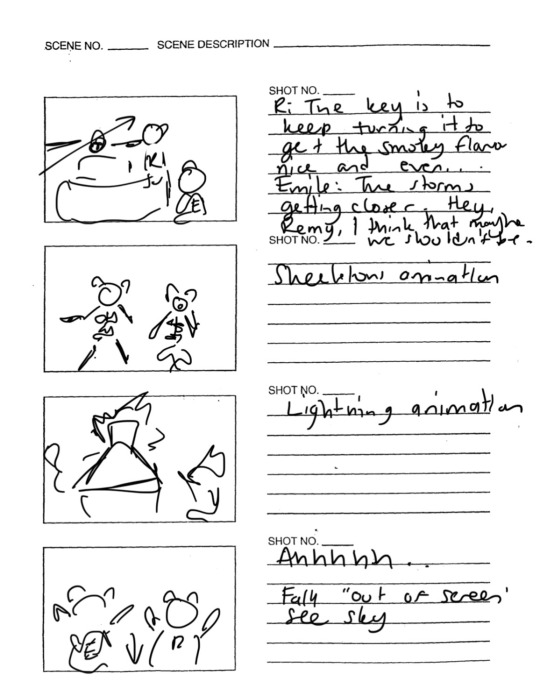 SCENE NO. SCENE DESCRIPTION
SHOT NO.
R: The key is to
keep turning it to
get the smokey flavor
nice and even...
Emile: The storms
getting closer. Hey,
Remy, I think that maybe
SHOT NO. we shouldn't be-
R
E
Skeletons animation
SHOT NO.
Lightning animation
SHOT NO.
Ahhhhh...
Fall "out of screen"
see sky
E
R